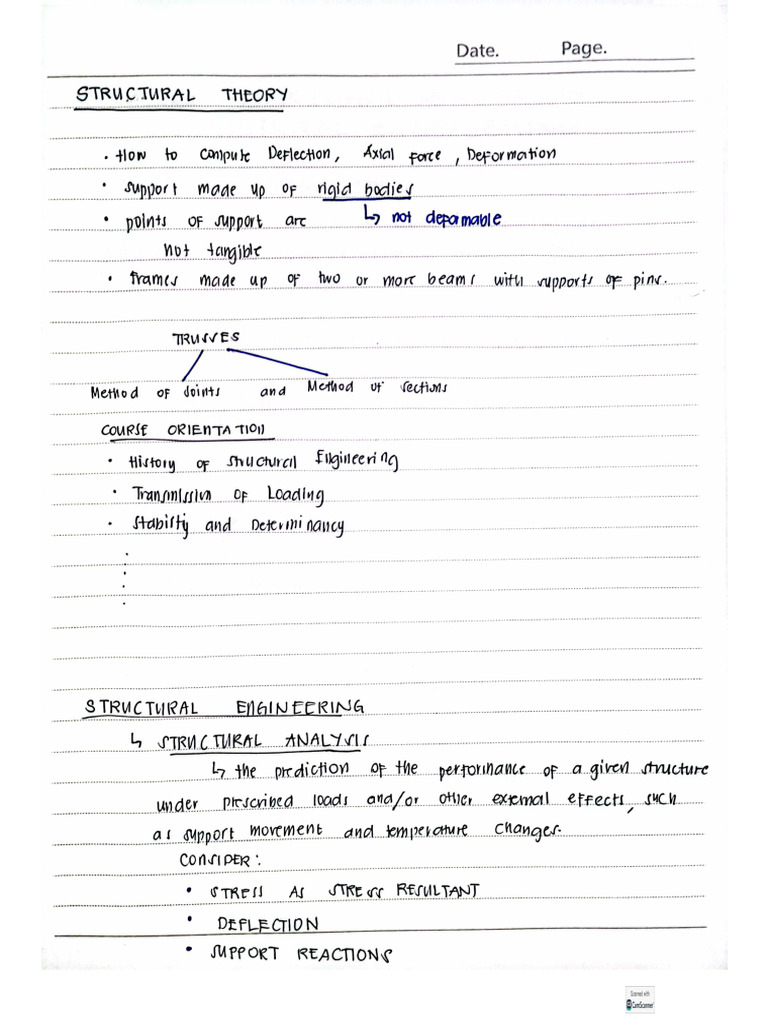 Date. Page.
STRUCTURAL THEORY
• How to compute Deflection, Axial Force, Deformation
• support made up of rigid bodies
• points of support are ↳ not deformable
not tangible
• Frames made up of two or more beams with supports of pins.
TRUSSES
Method of Joints and Method of sections
COURSE ORIENTATION
• History of Structural Engineering
• Transmission of Loading
• Stability and Determinancy
STRUCTURAL ENGINEERING
↳ STRUCTURAL ANALYSIS
↳ the prediction of the performance of a given structure
under prescribed loads and/or other external effects, such
as support movement and temperature changes.
CONSIDER:
• STRESS AS STRESS RESULTANT
• DEFLECTION
• SUPPORT REACTIONS
Scanned with
CamScanner